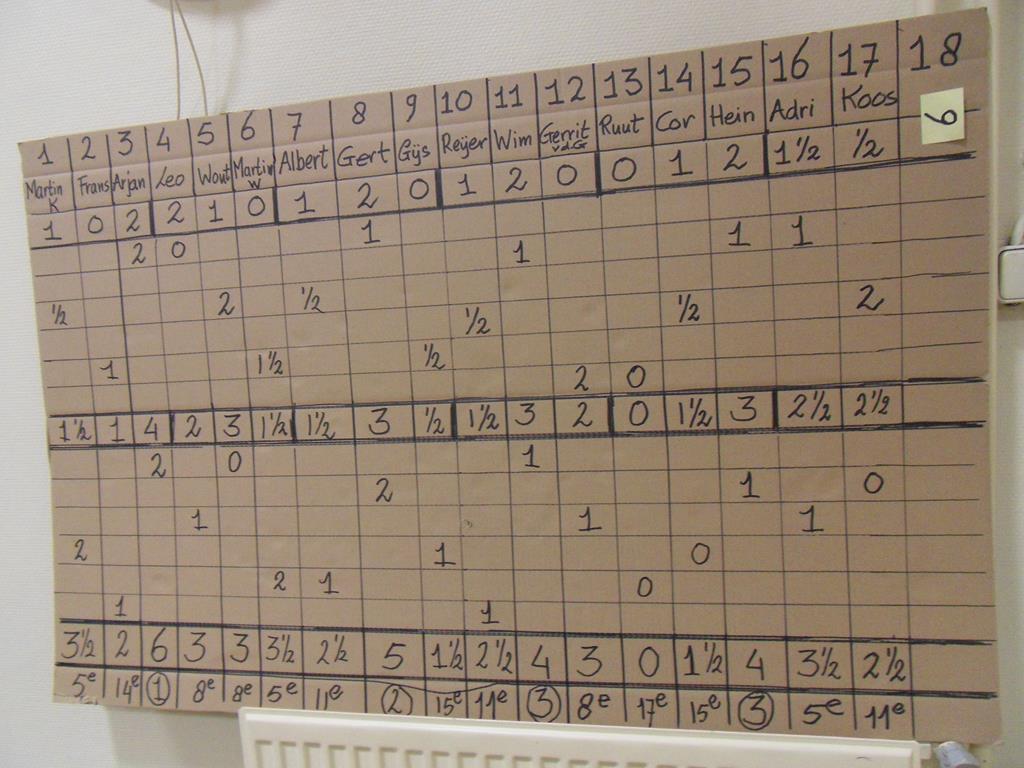 1 2 3 4 5 6 7 8 9 10 11 12 13 14 15 16 17 18
Martin K Frans Arjan Leo Wout Martin W Albert Gert Gijs Reijer Wim Gerrit v.d.G Ruut Cor Hein Adri Koos 6
1 0 2 2 1 0 1 2 0 1 2 0 0 1 2 1½ ½
2 0 1 1 1 1
½ 2 ½ ½ ½ 2
1 1½ ½ 2 0
1½ 1 4 2 3 1½ 1½ 3 ½ 1½ 3 2 0 1½ 3 2½ 2½
2 0 1
2 1 0
1 1 1
2 1 0
2 1 0
1 1
3½ 2 6 3 3 3½ 2½ 5 1½ 2½ 4 3 0 1½ 4 3½ 2½
5e 14e 1 8e 8e 5e 11e 2 15e 11e 3 8e 17e 15e 3 5e 11e